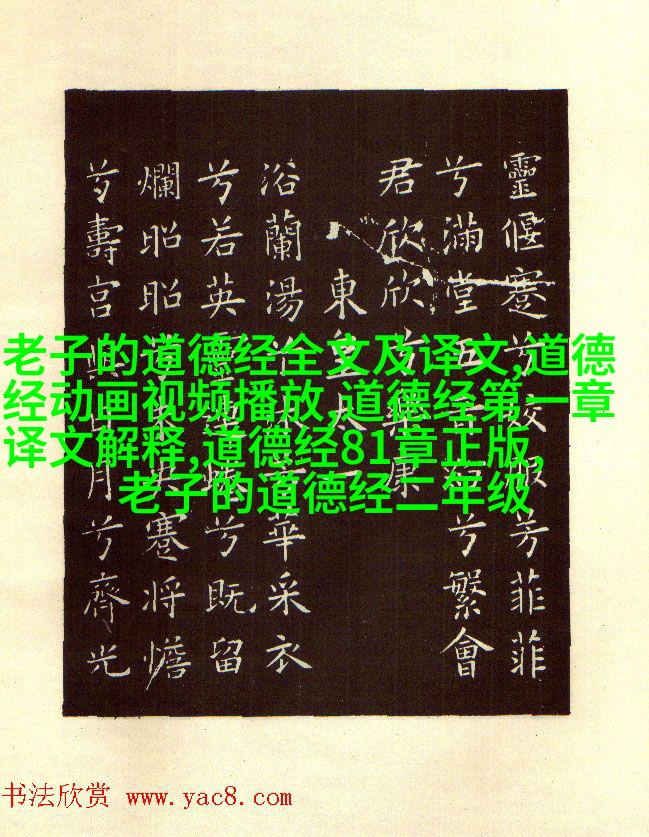 靈偃蹇兮姣服芳菲菲
兮滿堂五音兮繁會
君欣欣兮樂康
東皇太一
浴蘭湯兮沐芳華采衣
兮若英靈連蜷兮既留
爛昭昭未央蹇將憺
兮壽宮與日月兮齊光
老子的道德经全文及译文,道德
经动画视频播放,道德经第一章
译文解释,道德经81章正版,
老子的道德经二年级
书法欣赏 www.yac8.com